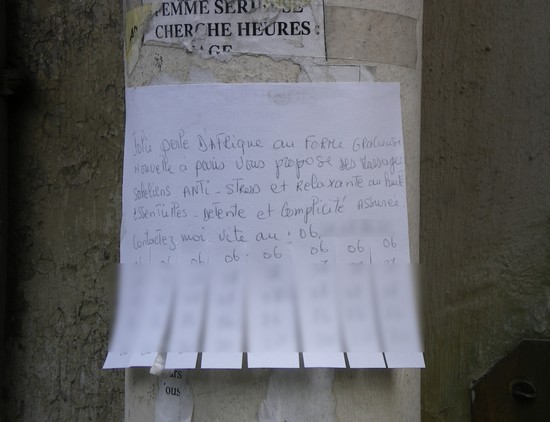 FEMME SERIEUSE
CHERCHE HEURES :
Jolie perle D'AFRIQUE au FORME GRACIEUSE
Nouvelle à paris Vous propose ses Massages
ANTI-STRESS et Relaxante au huile
ESSENTIELLES - Detente et Complicité Assurée
Contactez moi vite au : 06
06 06 06 06 06 06 06
ous